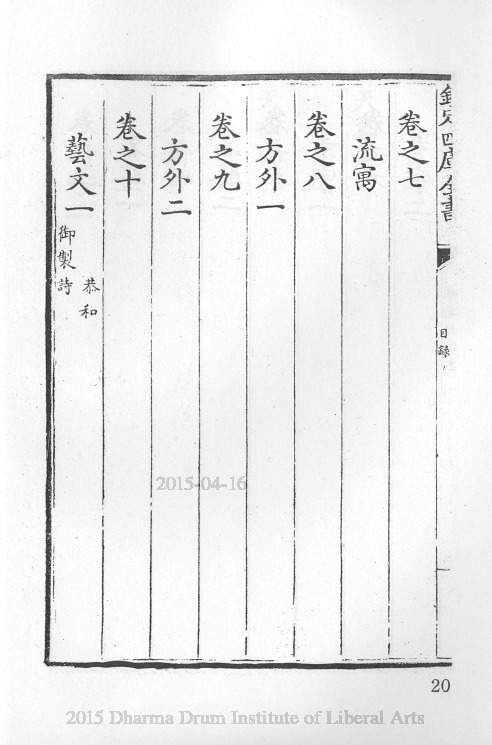 欽定四庫全書
目録
卷之七
流寓
卷之八
方外一
卷之九
方外二
卷之十
藝文一
恭和
御製詩
2015-04-16
20
2015 Dharma Drum Institute of Liberal Arts